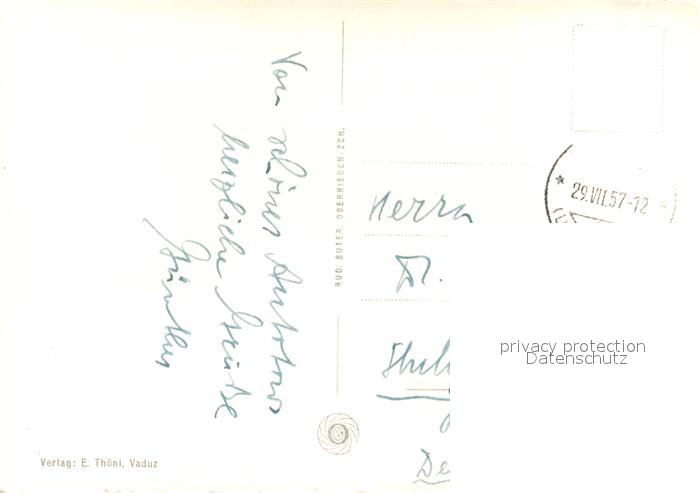 Von schöner Autotour
herzliche Grüße
Günther
RUD. SUTER, OBERRIEDEN-ZCH.
Verlag: E. Thöni, Vaduz
29.VII.57-12
Herrn
privacy protection
Datenschutz